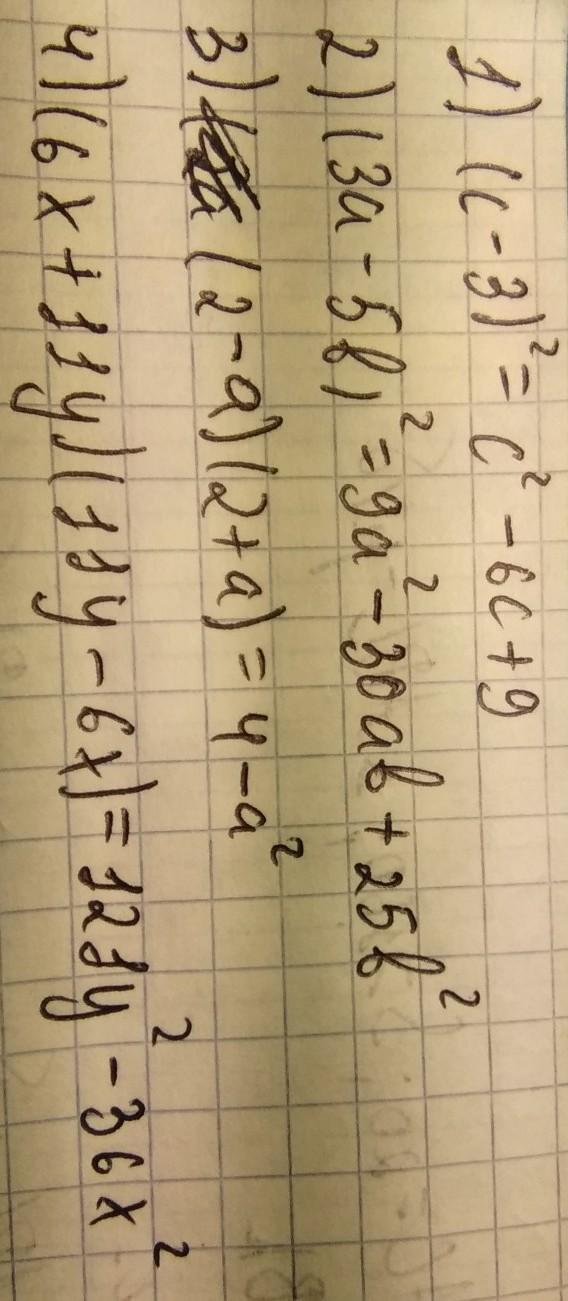 1) (c-3)² = c² - 6c + 9
2) (3a - 5b)² = 9a² - 30ab + 25b²
3) (2-a)(2+a) = 4 - a²
4) (6x + 11y)(11y - 6x) = 121y² - 36x²